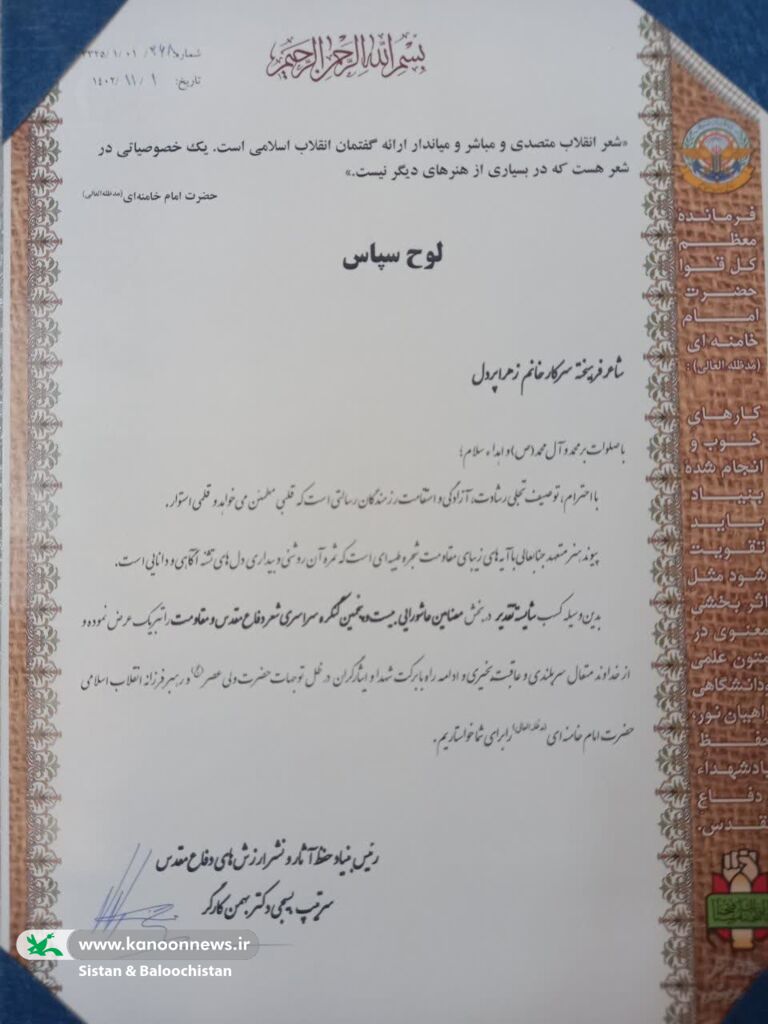 بسم الله الرحمن الرحیم
شماره:
تاریخ: ۱۴۰۲/۱۱/۱
«شعر انقلاب متصدی و مباشر و میاندار ارائه گفتمان انقلاب اسلامی است. یک خصوصیاتی در
شعر هست که در بسیاری از هنرهای دیگر نیست.»
حضرت امام خامنه‌ای (مدظله‌العالی)
لوح سپاس
شاعر فرهیخته سرکار خانم زهرا پردل
با صلوات بر محمد و آل محمد (ص) و اهداء سلام؛
با احترام، توصیف تجلی رشادت، آزادگی و استقامت رزمندگان رسالتی است که قلبی مطمئن می‌خواهد و قلمی استوار.
پیوند هنر متعهد جنابعالی با آیه‌های زیبای مقاومت شجره طیبه‌ای است که ثمره آن روشنی و بیداری دل‌های تشنه آگاهی و دانایی است.
بدین وسیله کسب شایسته تقدیر در بخش مضامین عاشورایی بیست و پنجمین کنگره سراسری شعر دفاع مقدس و مقاومت را تبریک عرض نموده و
از خداوند متعال سربلندی و عاقبت بخیری و ادامه راه با برکت شهدا و ایثارگران در ظل توجهات حضرت ولی عصر (عج) و رهبر فرزانه انقلاب اسلامی
حضرت امام خامنه‌ای (مدظله‌العالی) را برای شما خواستاریم.
رئیس بنیاد حفظ آثار و نشر ارزش‌های دفاع مقدس
سرتیپ بسیجی دکتر بهمن کارگر
فرمانده
معظم
کل قوا
حضرت
امام
خامنه ای
(مدظله العالی):
کارهای
خوب و
انجام شده
بنیاد
باید
تقویت
شود مثل
اثر بخشی
معنوی در
متون علمی
ودانشگاهی
راهیان نور،
حفظ
یادشهداء
دفاع
مقدس.
www.kanoonnews.ir
Sistan & Baloochistan